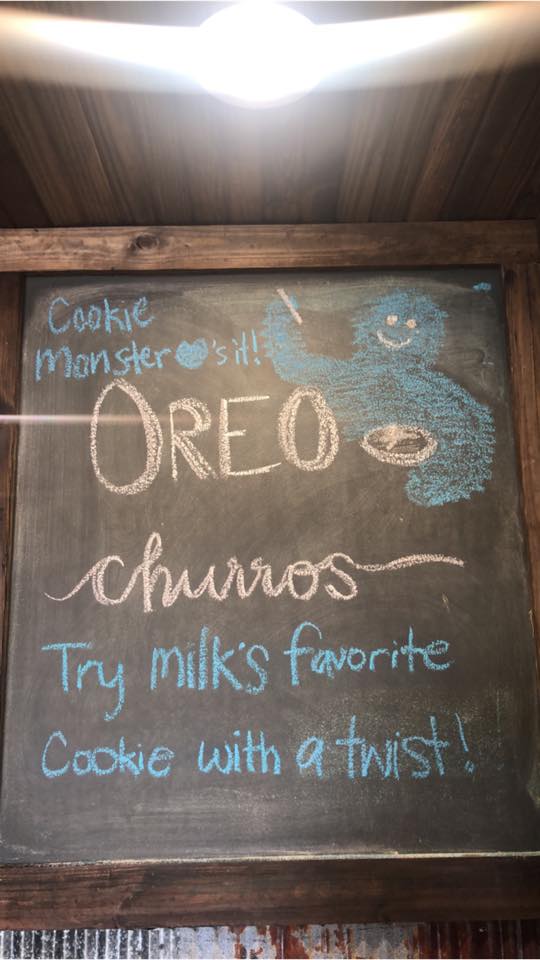 Cookie
Monster 💙's it!
OREO
churros
Try milk's favorite
Cookie with a twist!